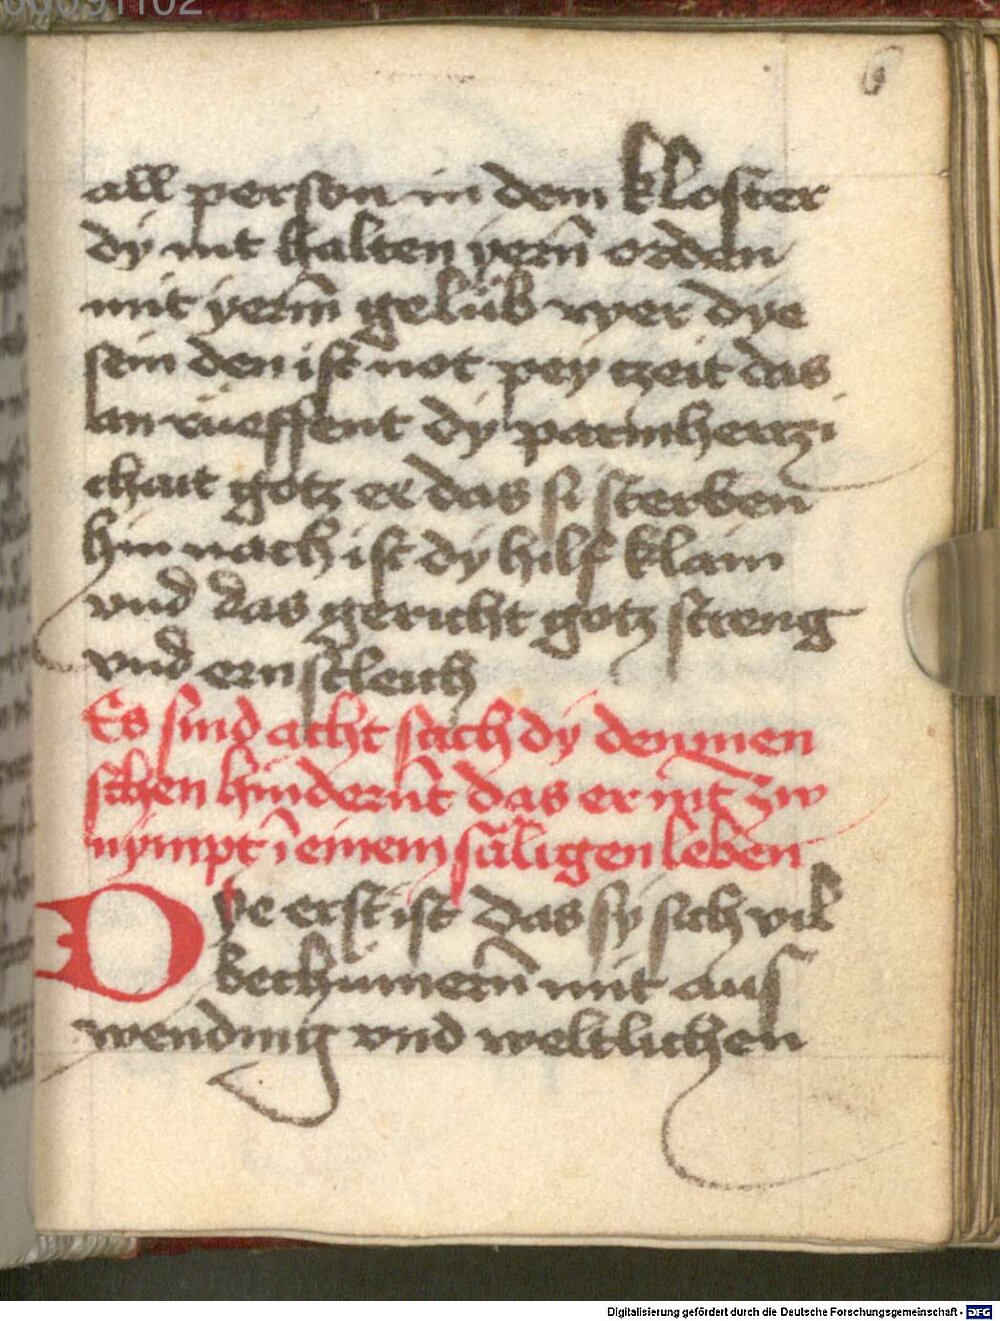 all person in dem kloster
dy nit halten yerm̄ orden
mit yerm̄ gelüb wyer dye
sein den ist not pey tzeit das
an rüeffent dy parmhertzi
chait gotz er das si sterben
hin nach ist dy hilf klain
vnd das gericht gotz streng
vnd ernstleich
Es sind acht sach dy den men
schen hindernt das er nit zw
nympt ī einem säligen leben
Dye erst ist das sy sich vil
bechümern̄ mit aus
wending vnd weltlichen
Digitalisierung gefördert durch die Deutsche Forschungsgemeinschaft - DFG